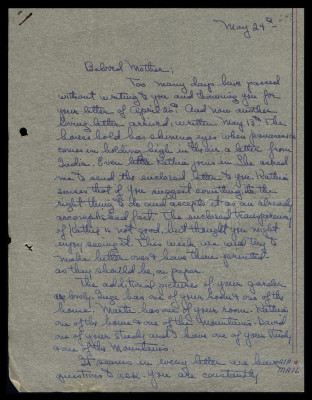 May 24th
Beloved Mother;
Too many days have passed
without writing to you and thanking you for
your letter of April 20th. And now another
loving letter arrived, written May 13th. The
household has shining eyes when
comes in holding high in the air a letter from
India. Even little Kathia joins in. She asked
me to send the enclosed letter to you. Kathia
knows that if you suggest something, it's the
right thing to do and accepts it as an already
accomplished fact. The enclosed transparency
of Kathia is not good, but thought you might
enjoy seeing it. This week we will try to
make better ones & have them printed
as they should be, on paper.
The additional pictures of your garden
are lovely. Inge has one of your and one of the
house. Marta has one of your room. Kathia
one of the home & one of the Mountains. David
one of your study and I have one of your study
& one of the Mountains.
It seems in every letter we have
questions to ask. You are constantly
AIR
MAIL